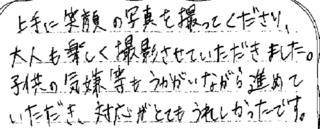 上手に笑顔の写真を撮ってくださり、
大人も楽しく撮影させていただきました。
子供の気嫌等もうかがいながら進めて
いただき、対応がとてもうれしかったです。